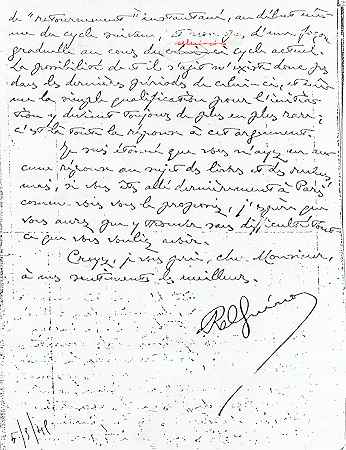 de "retournement" instantané, au début mê-
me du cycle suivant, et non pas d'une façon
graduelle au cours du cycle actuel.
La possibilité dont il s'agit n'existe donc pas
dans les dernières périodes de celui-ci, et comme
même la simple qualification pour l'initia-
tion y devient toujours de plus en plus rare,
c'est là toute la réponse à cet argument.
Je suis étonné que vous n'ayez eu au-
cune réponse au sujet des livres et des revues
mais, si vous êtes allé dernièrement à Paris
comme vous vous le proposiez, j'espère que
vous aurez pu y trouver sans difficulté tout
ce que vous vouliez avoir.
Croyez, je vous prie, cher Monsieur,
à mes sentiments les meilleurs.
René Guénon